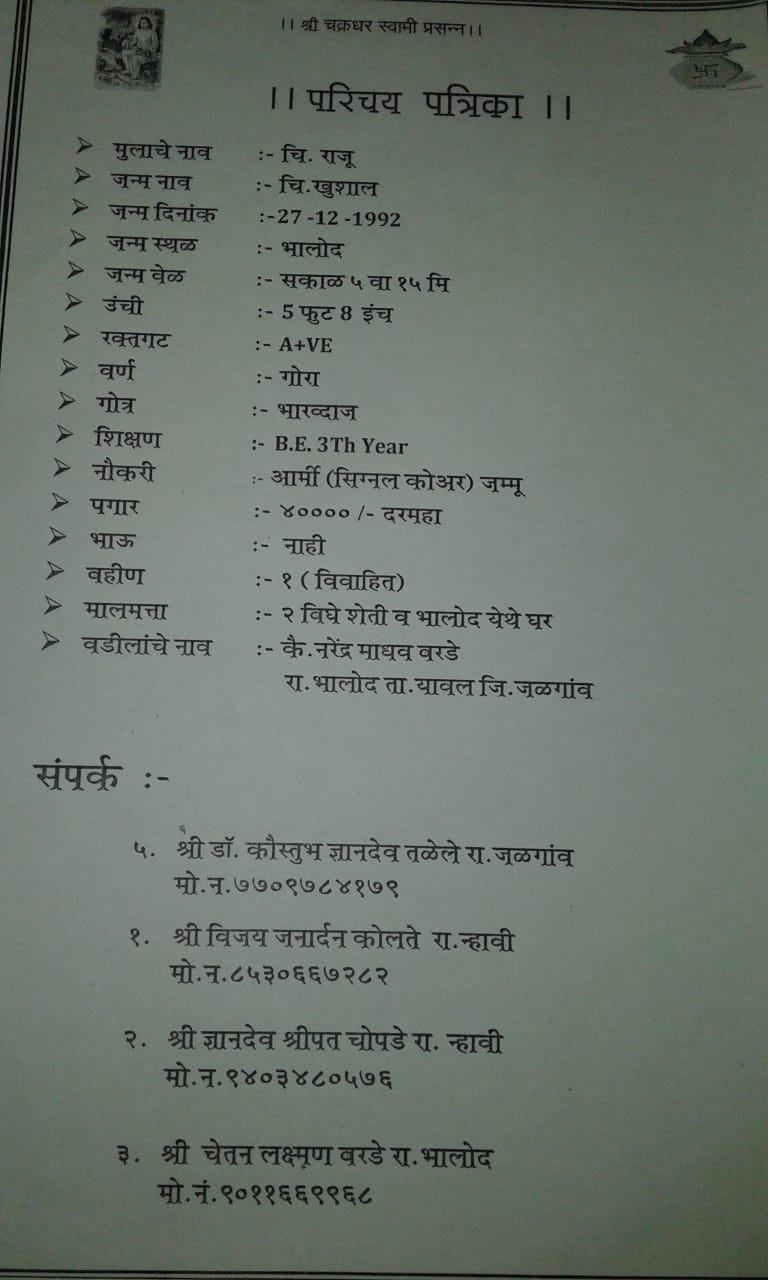 ।। श्री चक्रधर स्वामी प्रसन्न।।
।। परिचय पत्रिका ।।
➢ मुलाचे नाव :- चि. राजू
➢ जन्म नाव :- चि.खुशाल
➢ जन्म दिनांक :-27 -12 -1992
➢ जन्म स्थळ :- भालोद
➢ जन्म वेळ :- सकाळ ५ वा १५ मि
➢ उंची :- 5 फुट 8 इंच
➢ रक्तगट :- A+VE
➢ वर्ण :- गोरा
➢ गोत्र :- भारव्दाज
➢ शिक्षण :- B.E. 3Th Year
➢ नौकरी :- आर्मी (सिग्नल कोअर) जम्मू
➢ पगार :- ४०००० /- दरमहा
➢ भाऊ :- नाही
➢ वहीण :- १ ( विवाहित)
➢ मालमत्ता :- २ विघे शेती व भालोद येथे घर
➢ वडीलांचे नाव :- कै.नरेंद्र माधव वरडे
रा.भालोद ता.यावल जि.जळगांव
संपर्क :-
५. श्री डॉ. कौस्तुभ ज्ञानदेव तळेले रा.जळगांव
मो.न.७७०९७८४१७९
१. श्री विजय जनार्दन कोलते रा.न्हावी
मो.न.८५३०६६७२८२
२. श्री ज्ञानदेव श्रीपत चोपडे रा. न्हावी
मो.न.९४०३४८०५७६
३. श्री चेतन लक्ष्मण वरडे रा.भालोद
मो.नं.९०११६६९९६८